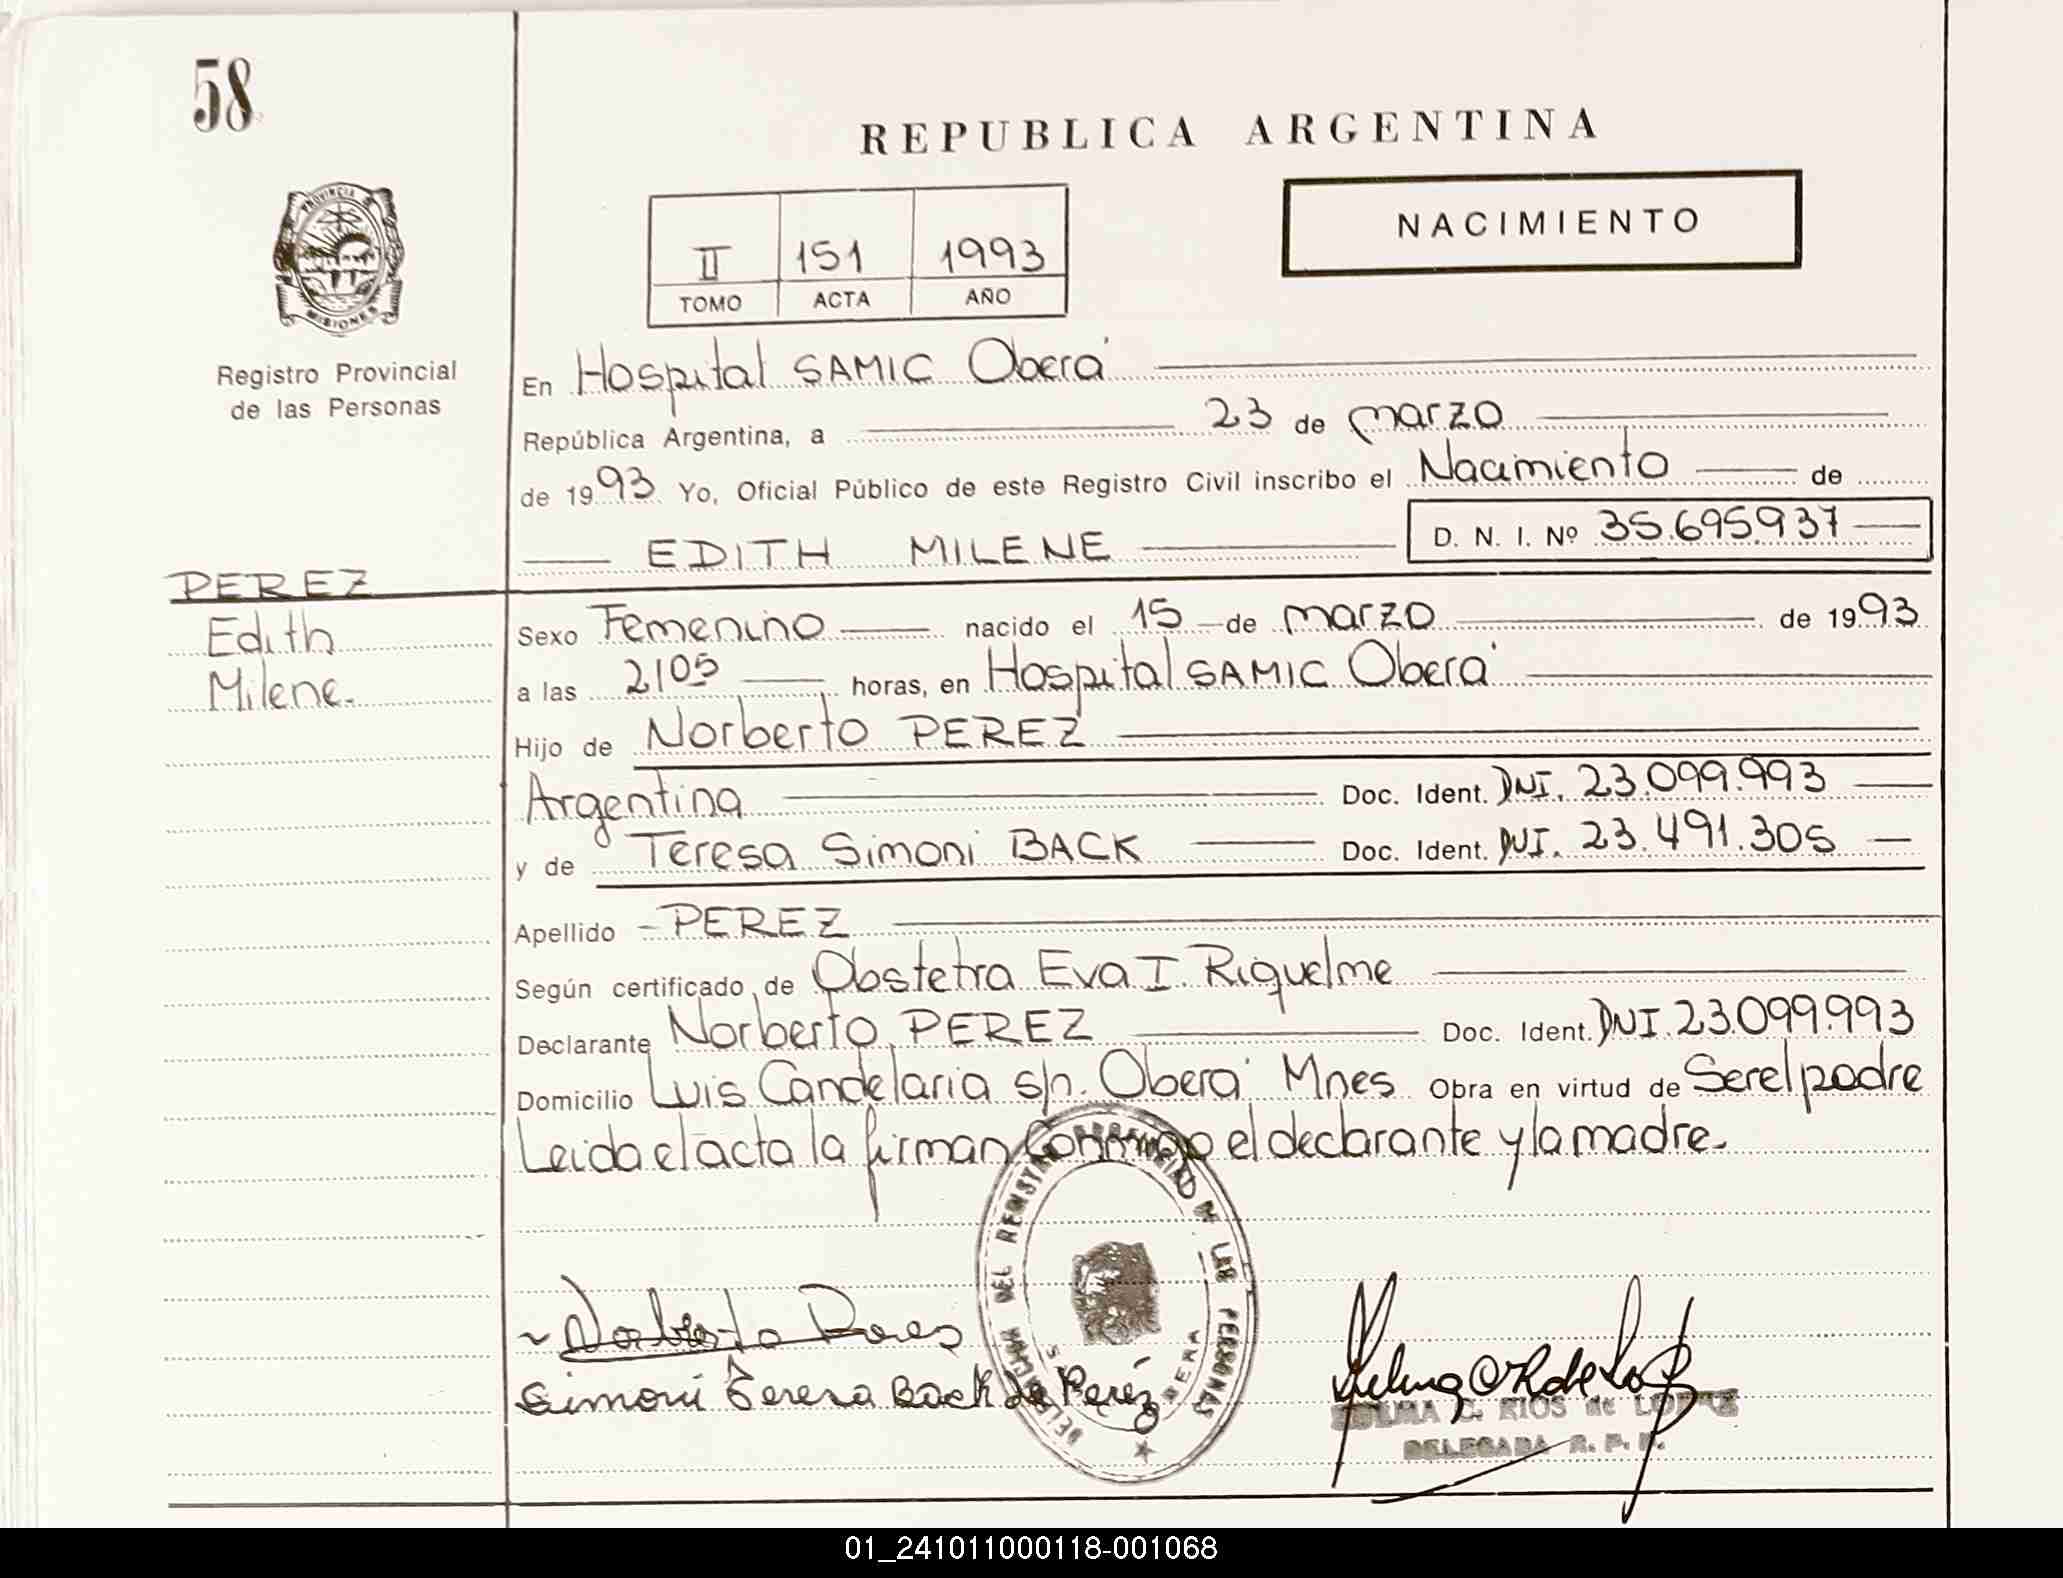 58
REPUBLICA ARGENTINA
PROVINCIA
MISIONES
Registro Provincial
de las Personas
NACIMIENTO
II 151 1993
TOMO ACTA AÑO
En Hospital SAMIC Oberá
República Argentina, a 23 de marzo
de 1993 Yo, Oficial Público de este Registro Civil inscribo el Nacimiento de
EDITH MILENE D. N. I. Nº 35.695.937
PEREZ
Edith
Milene.
Sexo Femenino nacido el 15 de marzo de 1993
a las 2105 horas, en Hospital SAMIC Oberá
Hijo de Norberto PEREZ
Argentina Doc. Ident. DNI. 23.099.993
y de Teresa Simoni BACK Doc. Ident. DNI. 23.491.305
Apellido - PEREZ
Según certificado de Obstetra Eva I. Riquelme
Declarante Norberto PEREZ Doc. Ident. DNI. 23.099.993
Domicilio Luis Candelaria s/n. Oberá Mnes Obra en virtud de Ser el padre
Leida el acta la firman Conmigo el declarante y la madre.
DEL REGISTRO DE LAS PERSONAS
OBERA
Norberto Peres
Simoni Teresa Back de Perez
C. RIOS de LOPEZ
DELEGADA R. P. P.
01_241011000118-001068